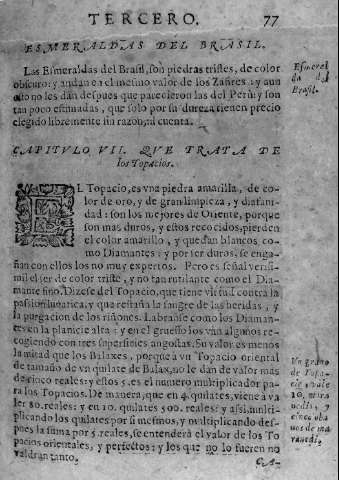 TERCERO. 77
ESMERALDAS DEL BRASIL.
Las Esmeraldas del Brasil, son piedras tristes, de color
obscuro: y andan en el mesmo valor de los Zafires: y aun
esto no les dan despues que parecieron las del Perù: y son
tan poco estimadas, que solo por su dureza tienen precio
elegido libremente sin razon, ni cuenta.
Esmeral
da del
Brasil.
CAPITVLO VII. QVE TRATA DE
los Topacios.
EL Topacio, es vna piedra amarilla, de co-
lor de oro, y de gran limpieza, y diafani-
dad: son los mejores de Oriente, porque
son mas duros, y estos recozidos, pierden
el color amarillo, y quedan blancos, co-
mo Diamantes: y por ser duros, se enga-
ñan con ellos los no muy expertos. Pero es señal verisi-
mil el ser de color triste, y no tan rutilante como el Dia-
mante fino. Dizese del Topacio, que tiene virtud contra la
passion lunatica, y que restaña la sangre de las heridas, y
la purgacion de los riñones. Labranse como los Diaman-
tes en la planicie alta: y en el gruesso los van algunos re-
cogiendo con tres superficies angostas. Su valor es menos
la mitad que los Balaxes, porque à vn Topacio oriental
de tamaño de vn quilate de Balax, no le dan de valor mas
de cinco reales: y estos 5. es el numero multiplicador pa-
ra los Topacios. De manera, que en 4. quilates, viene à va
ler 80. reales: y en 10. quilates 500. reales: y assi multi-
plicando los quilates por si mesmos, y multiplicando des-
pues la suma por 5. reales, se entenderà el valor de los To
pacios orientales, y perfectos: y los que no lo fueren no
valdran tanto.
Vn grano
de Topa-
cio vale
10. mara
uedis, y
cinco oba
uos de ma
rauedi.
CA-